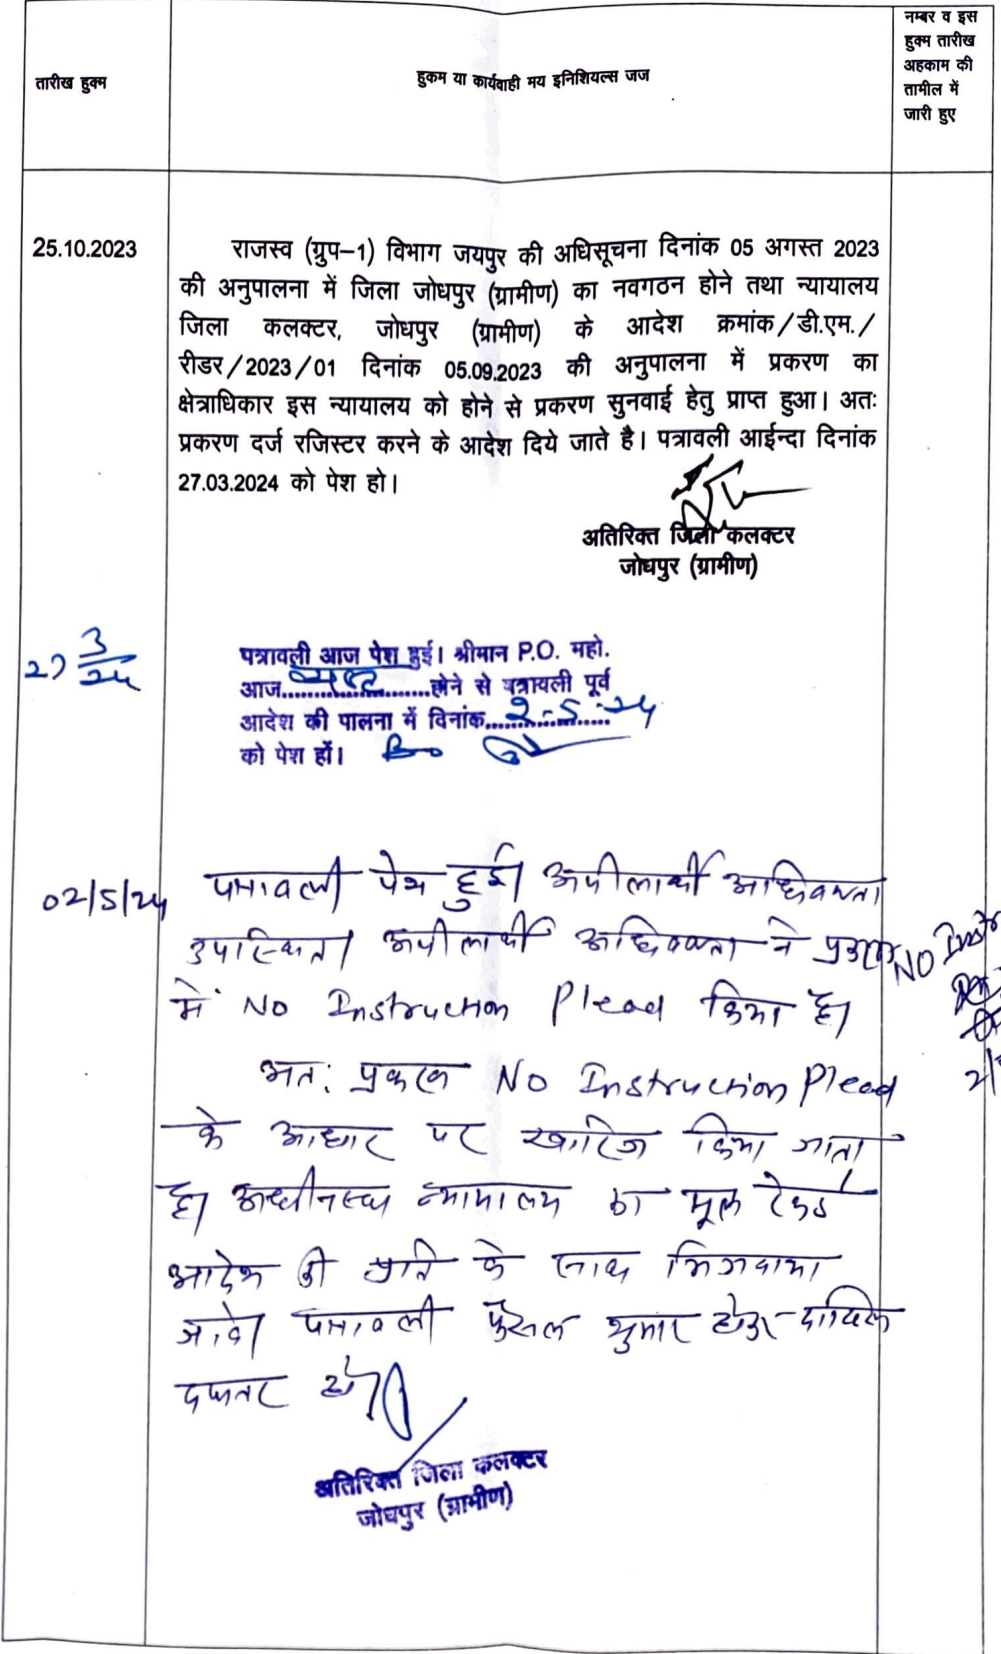 तारीख हुक्म
हुकम या कार्यवाही मय इनिशियल्स जज
नम्बर व इस
हुक्म तारीख
अहकाम की
तामील में
जारी हुए
25.10.2023
राजस्व (ग्रुप–1) विभाग जयपुर की अधिसूचना दिनांक 05 अगस्त 2023
की अनुपालना में जिला जोधपुर (ग्रामीण) का नवगठन होने तथा न्यायालय
जिला कलक्टर, जोधपुर (ग्रामीण) के आदेश क्रमांक/डी.एम./
रीडर/2023/01 दिनांक 05.09.2023 की अनुपालना में प्रकरण का
क्षेत्राधिकार इस न्यायालय को होने से प्रकरण सुनवाई हेतु प्राप्त हुआ। अतः
प्रकरण दर्ज रजिस्टर करने के आदेश दिये जाते है। पत्रावली आईन्दा दिनांक
27.03.2024 को पेश हो।
अतिरिक्त जिला कलक्टर
जोधपुर (ग्रामीण)
27 3/24
पत्रावली आज पेश हुई। श्रीमान P.O. महो.
आज..... व्यस्त .....होने से पत्रावली पूर्व
आदेश की पालना में दिनांक..... 2-5-24
को पेश हों।
02/5/24
पत्रावली पेश हुई। अपीलार्थी अधिवक्ता
उपस्थित। अपीलार्थी अधिवक्ता ने प्रकरण
में No Instruction Plead किया है।
अतः प्रकरण No Instruction Plead
के आधार पर खारिज किया जाता
है। अधीनस्थ न्यायालय का मूल रेकर्ड
आदेश की प्रति के साथ भिजवाया
जावे। पत्रावली फैसल शुमार होकर दाखिल
दफ्तर हो।
No
अतिरिक्त जिला कलक्टर
जोधपुर (ग्रामीण)